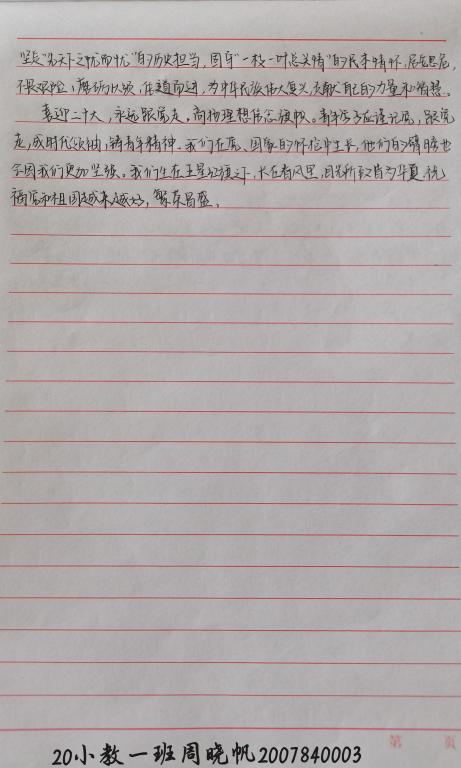 坚定“先天下之忧而忧”的历史担当,图穿“一枝一叶总关情”的民本情怀,居安思危,
不畏艰险,磨砺以须,任道而进,为中华民族伟大复兴贡献自己的力量和智慧。
喜迎二十大,永远跟党走。高物理想信念旗帜。青年学子应谨记党,跟党
走,成时代领袖,铸青年精神。我们在党、国家的怀抱中生长,他们的臂膀也
会因我们更加坚强。我们生在五星红旗之下,长在春风里,目光所致皆为华夏。祝
福党和祖国越来越好,繁荣昌盛。
第 页
20小教一班周晓帆2007840003